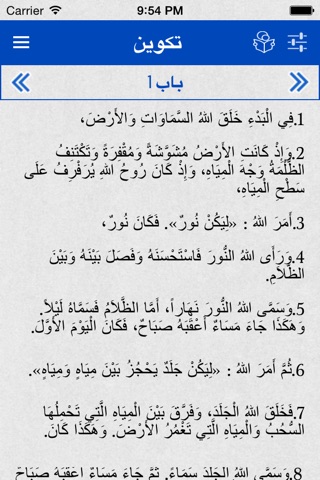 Carrier 9:54 PM
تكوين
باب1
1.فِي الْبَدْءِ خَلَقَ اللهُ السَّمَاوَاتِ وَالأَرْضَ،
2.وَإِذْ كَانَتِ الأَرْضُ مُشَوَّشَةً وَمُقْفِرَةً وَتَكْتَنِفُ
الظُّلْمَةُ وَجْهَ الْمِيَاهِ، وَإِذْ كَانَ رُوحُ اللهِ يُرَفْرِفُ عَلَى
سَطْحِ الْمِيَاهِ،
3.أَمَرَ اللهُ : «لِيَكُنْ نُورٌ». فَكَانَ نُورٌ،
4.وَرَأَى اللهُ النُّورَ فَاسْتَحْسَنَهُ وَفَصَلَ بَيْنَهُ وَبَيْنَ
الظَّلاَمِ.
5.وَسَمَّى اللهُ النُّورَ نَهَاراً، أَمَّا الظَّلاَمُ فَسَمَّاهُ لَيْلاً.
وَهَكَذَا جَاءَ مَسَاءٌ أَعْقَبَهُ صَبَاحٌ، فَكَانَ الْيَوْمَ الأَوَّلَ.
6.ثُمَّ أَمَرَ اللهُ : «لِيَكُنْ جَلَدٌ يَحْجُزُ بَيْنَ مِيَاهٍ وَمِيَاهٍ».
7.فَخَلَقَ اللهُ الْجَلَدَ، وَفَرَّقَ بَيْنَ الْمِيَاهِ الَّتِي تَحْمِلُهَا
السُّحُبُ وَالْمِيَاهِ الَّتِي تَغْمُرُ الأَرْضَ. وَهَكَذَا كَانَ.
8.وَسَمَّى اللهُ الْجَلَدَ سَمَاءً. ثُمَّ جَاءَ مَسَاءٌ أَعْقَبَهُ صَبَاحٌ